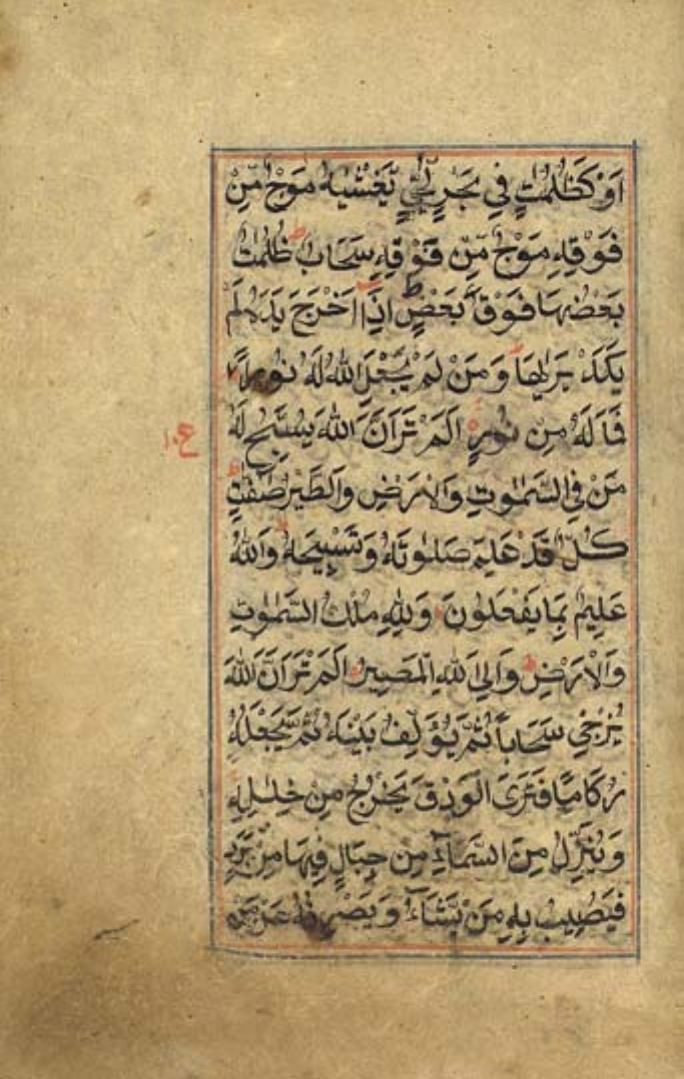 اَوْ كَظُلُمٰتٍ فِي بَحْرٍ لُّجِّيٍّ يَّغْشٰيهُ مَوْجٌ مِّنْ
فَوْقِهٖ مَوْجٌ مِّنْ فَوْقِهٖ سَحَابٌ ط ظُلُمٰتٌ
بَعْضُهَا فَوْقَ بَعْضٍ ط اِذَا اَخْرَجَ يَدَهُ لَمْ
يَكَدْ يَرٰىهَا وَمَنْ لَمْ يَجْعَلِ اللّٰهُ لَهُ نُوراً
فَمَا لَهُ مِنْ نُورٍ اَلَمْ تَرَ اَنَّ اللّٰهَ يُسَبِّحُ لَهُ
ع ١٠
مَنْ فِي السَّمٰوٰتِ وَالْاَرْضِ وَالطَّيْرُ صٰفّٰتٍ ط
كُلٌّ قَدْ عَلِمَ صَلٰوتَهُ وَتَسْبِيحَهُ وَاللّٰهُ
عَلِيمٌ بِمَا يَفْعَلُونَ وَلِلّٰهِ مُلْكُ السَّمٰوٰتِ
وَالْاَرْضِ وَاِلَى اللّٰهِ الْمَصِيرُ اَلَمْ تَرَ اَنَّ اللّٰهَ
يُزْجِي سَحَاباً ثُمَّ يُؤَلِّفُ بَيْنَهُ ثُمَّ يَجْعَلُهُ
رُكَامًا فَتَرَى الْوَدْقَ يَخْرُجُ مِنْ خِلٰلِهٖ
وَيُنَزِّلُ مِنَ السَّمَآءِ مِنْ جِبَالٍ فِيهَا مِنْ بَرَدٍ
فَيُصِيبُ بِهٖ مَنْ يَّشَآءُ وَيَصْرِفُهُ عَنْ مَنْ